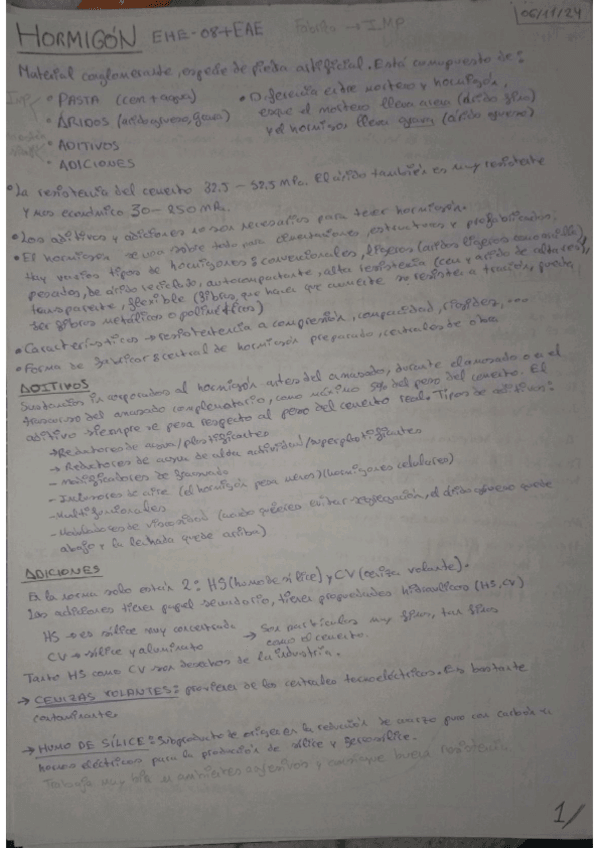 06/11/24
HORMIGÓN EHE-08+EAE → IMP
Material conglomerante, especie de piedra artificial. Está compuesto de:
• PASTA (cem + agua)
• ÁRIDOS (árido grueso, grava)
• ADITIVOS
• ADICIONES
• Diferencia entre mortero y hormigón,
es que el mortero lleva arena (árido fino)
y el hormigón lleva grava (árido grueso)
• La resistencia del cemento 32.5 - 52.5 MPa. El árido también es muy resistente
y más económico 30 - 250 MPa.
• Los aditivos y adiciones no son necesarios para tener hormigón.
• El hormigón se usa sobre todo para cimentaciones, estructuras y prefabricados.
Hay varios tipos de hormigones: convencionales, ligeros (áridos ligeros como arcilla),
pesados, de árido reciclado, autocompactante, alta resistencia (cem y árido de alta res),
transparente, flexible (fibras, que hacen que aumente su resisten. a tracción, pueden
ser fibras metálicas o poliméricas)
• Características → resistetencia a compresión, compacidad, rigidez, ...
• Forma de fabricar: central de hormigón preparado, centrales de obra
ADITIVOS
Sustancias incorporadas al hormigón antes del amasado, durante el amasado o en el
transcurso del amasado complementario, como máximo 5% del peso del cemento. El
aditivo siempre se pesa respecto al peso del cemento real. Tipos de aditivos:
→ Reductores de agua/plastificantes
→ Reductores de agua de alta actividad/superplastificantes
- Modificadores de fraguado
- Inclusores de aire (el hormigón pesa menos) (hormigones celulares)
- Multifuncionales
- Moduladores de viscosidad (cuando quieres evitar segregación, el árido grueso quede
abajo y la lechada quede arriba)
ADICIONES
En la norma solo están 2: HS (humo de sílice) y CV (ceniza volante).
Las adiciones tienen papel secundario, tienen propiedades hidraulicas (HS, CV)
HS → es sílice muy concentrada
CV → sílice y aluminato
→ Son partículas muy finas, tan finas
como el cemento.
Tanto HS como CV son desechos de la industria.
→ CENIZAS VOLANTES: provienen de las centrales termoeléctricas. Es bastante
contaminante
→ HUMO DE SÍLICE: Subproducto de origen en la reducción de cuarzo puro con carbón en
hornos eléctricos para la producción de sílice y ferrosílice.
Trabaja muy bien en ambientes agresivos y consigue buena resistencia
1/